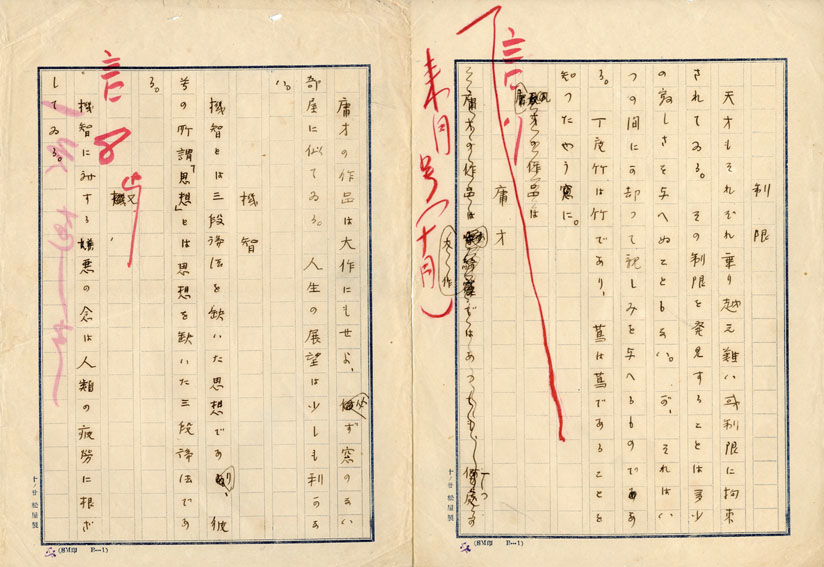 制限
天才もそれぞれ乗り越え難い或制限に拘束
されてゐる。その制限を発見することは多少
の寂しさを与へぬこともない。が、それはい
つの間にか却つて親しみを与へるものであ
る。丁度竹は竹であり、蔦は蔦であることを
知つたやう窓に。
庸才
庸才の作品は
庸才の作品は
大作
来月号(十月)
庸才の作品は大作にもせよ、必ず窓のない
部屋に似てゐる。人生の展望は少しも利かな
い。
機智
機智とは三段論法を欠いた思想であり、彼
等の所謂「思想」とは思想を欠いた三段論法であ
る。
又
機智に対する嫌悪の念は人類の疲労に根ざ
してゐる。
十ノ廿 松屋製
(SM印 B—1)
十ノ廿 松屋製
(SM印 B—1)